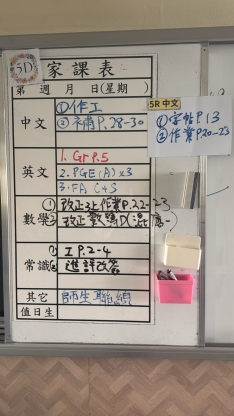 5D
家課表
第 週 月 日(星期 )
中文
①作工
②補P.28-30
5R 中文
①字帖P.13
②作業P.20-23
英文
1. Gr P.5
2. PGE(A) x3
3. FA C+S
數學
①改正上作業P.22-23
改正數
常識
①工P.2-4
②進評改簽
其它
師生聯繩
值日生